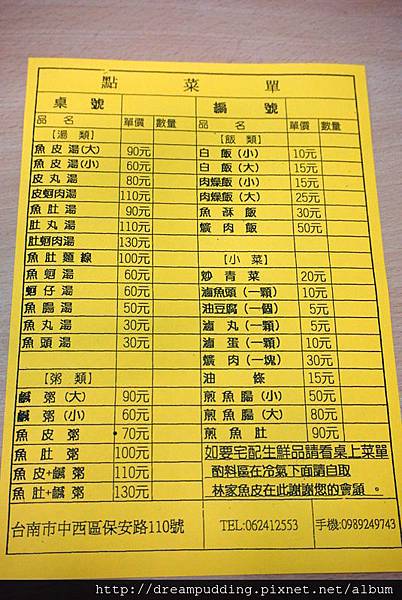 點 菜 單
桌 號 編 號
品 名 單價 數量 品 名 單價 數量
【湯 類】 【飯 類】
魚 皮 湯(大) 90元 白 飯(小) 10元
魚 皮 湯(小) 60元 白 飯(大) 15元
皮 丸 湯 80元 肉燥飯(小) 15元
皮蚵肉湯 110元 肉燥飯(大) 25元
魚 肚 湯 90元 魚 酥 飯 30元
肚 丸 湯 110元 爌 肉 飯 50元
肚蚵肉湯 130元
魚 肚 麵 線 100元 【小 菜】
魚 蚵 湯 60元 炒 青 菜 20元
蚵 仔 湯 60元 滷魚頭(一顆) 10元
魚 腸 湯 50元 油豆腐(一個) 5元
魚 丸 湯 30元 滷 丸(一顆) 5元
魚 頭 湯 30元 滷 蛋(一顆) 10元
爌 肉(一塊) 30元
【粥 類】 油 條 15元
鹹 粥(大) 90元 煎 魚 腸(小) 50元
鹹 粥(小) 60元 煎 魚 腸(大) 80元
魚 皮 粥 70元 煎 魚 肚 90元
魚 肚 粥 100元 如要宅配生鮮品請看桌上菜單
魚 皮+鹹 粥 110元 酌料區在冷氣下面請自取
魚 肚+鹹 粥 130元 林家魚皮在此謝謝您的會顧 。
台南市中西區保安路110號 TEL:062412553 手機:0989249743
http://dreampudding.pixnet.net/album